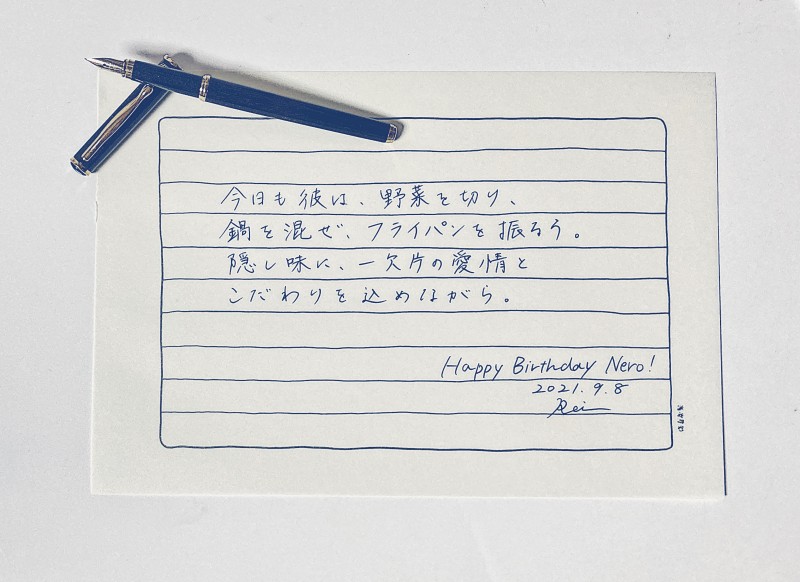 今日も彼は、野菜を切り、
鍋を混ぜ、フライパンを振るう。
隠し味に、一欠片の愛情と
こだわりを込めながら。
Happy Birthday Nero!
2021.9.8
Rei